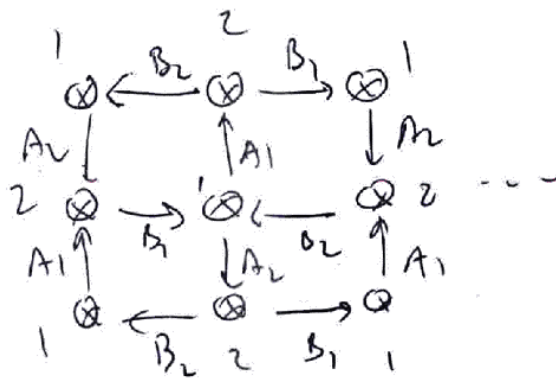 1 2 1
B2 B1
A2 A1 A2
2 1 2 ---
B1 B2
A1 A2 A1
B2 B1
1 2 1